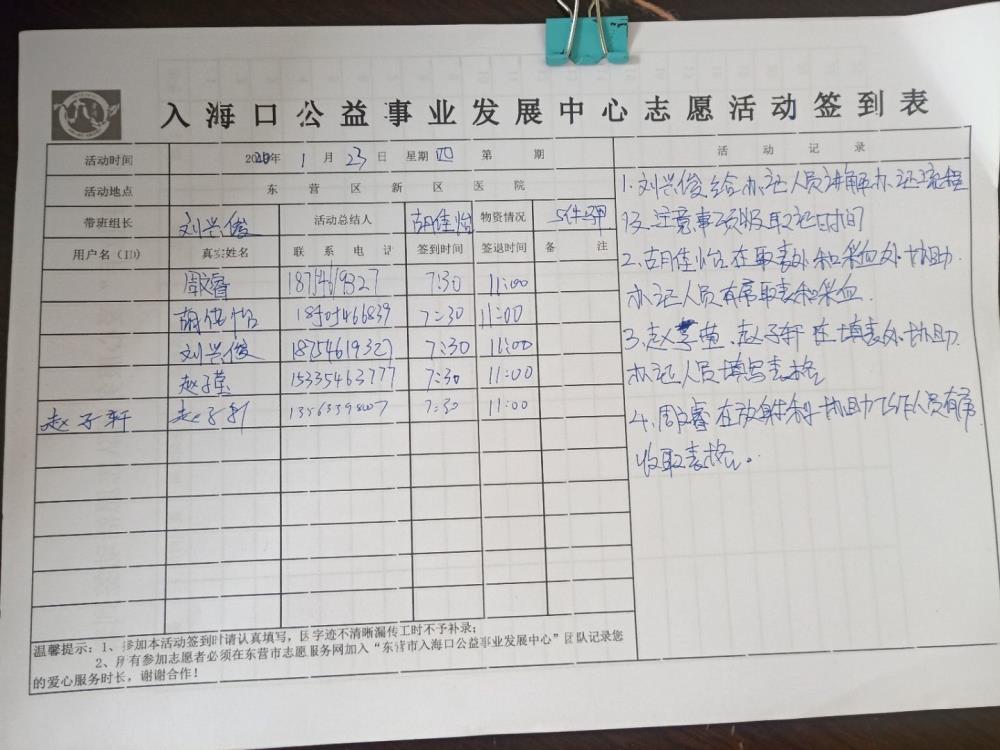 入海口公益事业发展中心志愿活动签到表
活动时间 2020年 1月 23日 星期四 第 期
活动地点 东营区新区医院
带班组长 刘兴俊 活动总结人 胡佳怡 物资情况 5件马甲
用户名(ID) 真实姓名 联系电话 签到时间 签退时间 备注
周文睿 7:30 11:00
胡佳怡 18505466839 7:30 11:00
刘兴俊 18754619327 7:30 11:00
赵子莹 15335463777 7:30 11:00
赵子轩 赵子轩 7:30 11:00
温馨提示:1、参加本活动签到时请认真填写,因字迹不清晰漏传工时不予补录;
2、所有参加志愿者必须在东营市志愿服务网加入“东营市入海口公益事业发展中心”团队记录您
的爱心服务时长,谢谢合作!
活动记录
1.刘兴俊给办证人员讲解办证流程
及注意事项以及取证时间
2.胡佳怡在取表处和采血处协助
办证人员有序取表和采血.
3.赵子莹、赵子轩在填表处协助
办证人员填写表格
4.周文睿在放射科协助工作人员有序
收取表格。